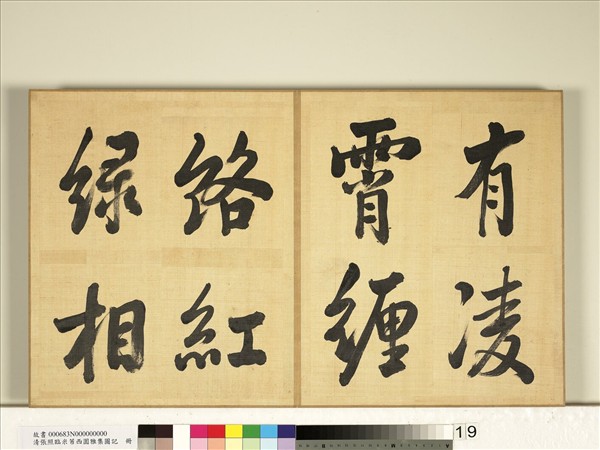 有凌
霄纏
絡紅
綠相
故書 000683N000000000
清張照臨米芾西園雅集圖記 冊
19